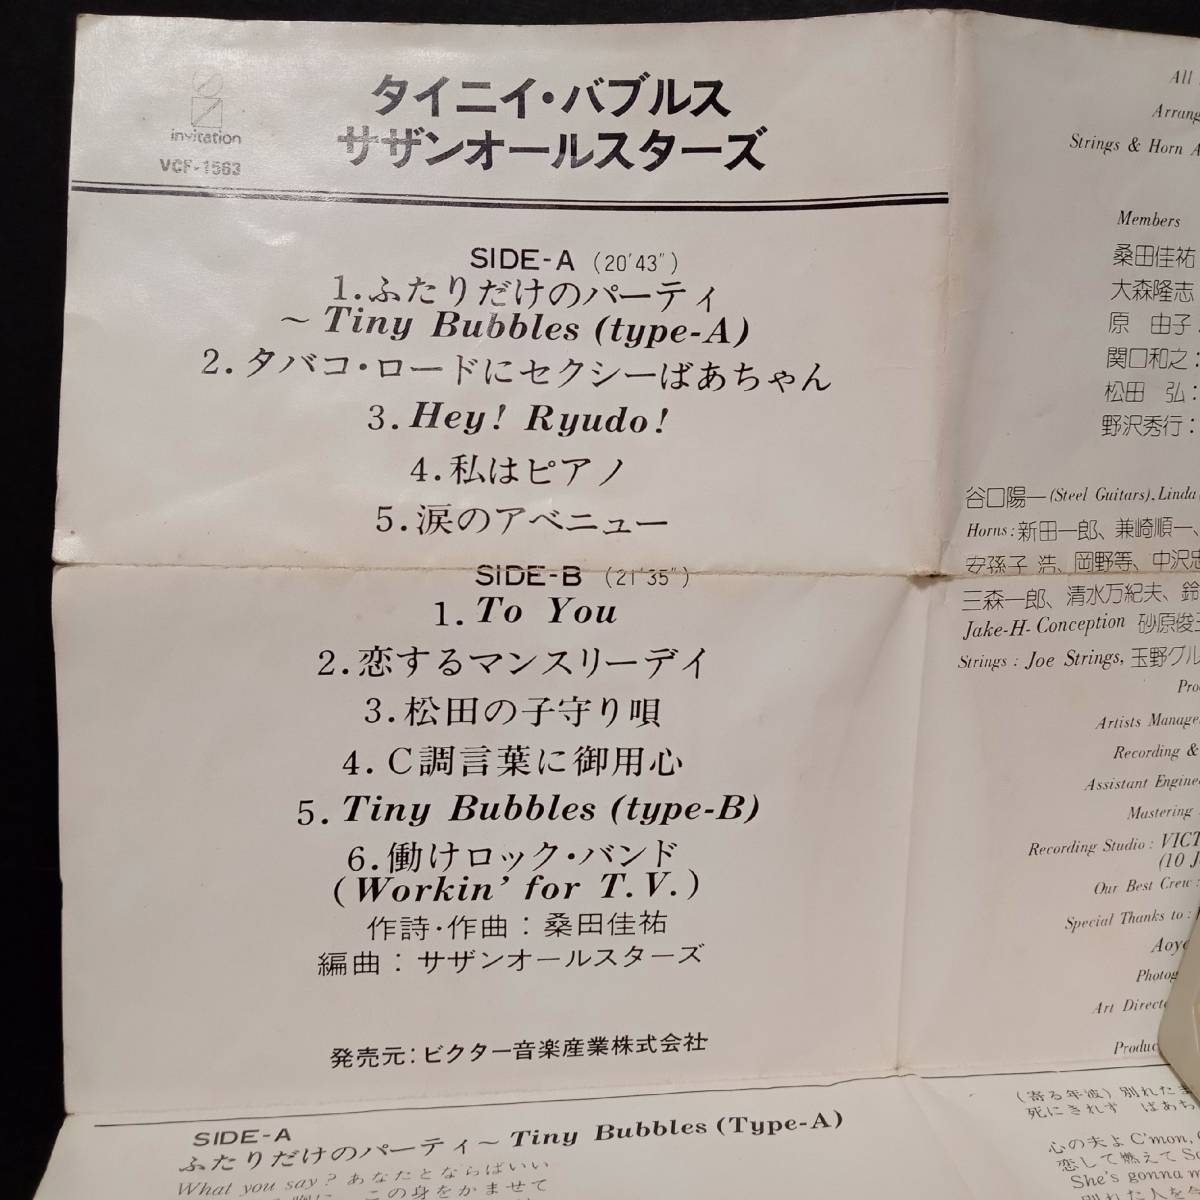 invitation
VCF-1563
タイニイ・バブルス
サザンオールスターズ
SIDE-A (20'43")
1.ふたりだけのパーティ
～Tiny Bubbles (type-A)
2.タバコ・ロードにセクシーばあちゃん
3.Hey! Ryudo!
4.私はピアノ
5.涙のアベニュー
SIDE-B (21'35")
1.To You
2.恋するマンスリーデイ
3.松田の子守り唄
4.C調言葉に御用心
5.Tiny Bubbles (type-B)
6.働けロック・バンド
(Workin' for T.V.)
作詩・作曲：桑田佳祐
編曲：サザンオールスターズ
発売元：ビクター音楽産業株式会社
All
Strings & Horn
Members
桑田佳祐
大森隆志
原 由子
関口和之：
松田 弘：
野沢秀行：
谷口陽一(Steel Guitars), Linda
Horns：新田一郎、兼崎順一、
安孫子 浩、岡野等、中沢
三森一郎、清水万紀夫、鈴
Jake-H-Conception 砂原俊
Strings：Joe Strings, 玉野
Artists
Recording &
Assistant
Mastering
Recording Studio：
(10
Our Best Crew：
Special Thanks to：
Art
SIDE-A
ふたりだけのパーティ～Tiny Bubbles (Type-A)
What you say? あなたとならばいい
この身をかませて
(寄る年波) 別れた
死にきれず ばあち
心の夫よ C'mon,
恋して燃えて
She's gonna
別れた人を